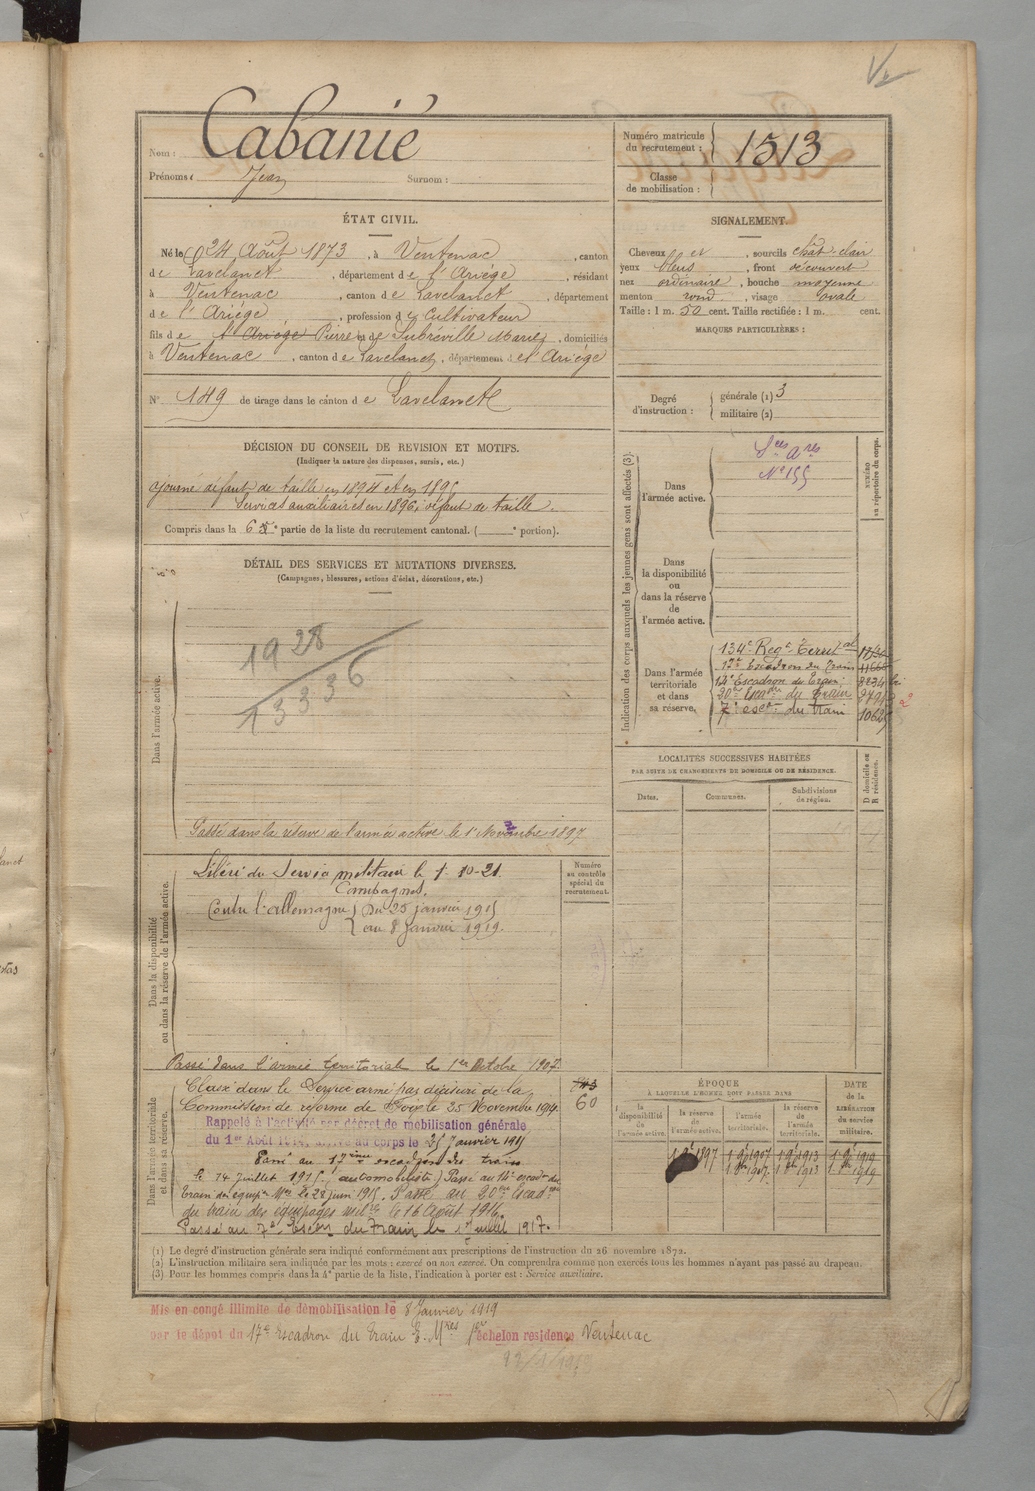 Cabanié
Nom :
Prénoms : Jean Surnom :
Numéro matricule du recrutement : 1513
Classe de mobilisation :
ÉTAT CIVIL.
Né le 24 Août 1873, à Ventenac, canton
de Lavelanet, département de l'Ariège, résidant
à Ventenac, canton de Lavelanet, département
de l'Ariège, profession de Cultivateur
fils de l'Ariège Pierre et de Subréville Marie, domiciliés
à Ventenac, canton de Lavelanet, département de l'Ariège
N° 149 de tirage dans le canton de Lavelanet
SIGNALEMENT.
Cheveux et, sourcils chât. clair
yeux bleus, front découvert
nez ordinaire, bouche moyenne
menton rond, visage ovale
Taille : 1 m. 50 cent. Taille rectifiée : 1 m. cent.
MARQUES PARTICULIÈRES :
Degré d'instruction : générale (1) 3
militaire (2)
DÉCISION DU CONSEIL DE REVISION ET MOTIFS.
(Indiquer la nature des dispenses, sursis, etc.)
ajourné défaut de taille en 1894 et en 1895
Services auxiliaires en 1896, défaut de taille.
Compris dans la 6 5e partie de la liste du recrutement cantonal. ( e portion).
DÉTAIL DES SERVICES ET MUTATIONS DIVERSES.
(Campagnes, blessures, actions d'éclat, décorations, etc.)
Dans l'armée active.
1928
13336
Passé dans la réserve de l'armée active le 1er Novembre 1897
Dans la disponibilité ou dans la réserve de l'armée active.
Libéré du Service militaire le 1. 10-21.
Campagnes.
Contre l'allemagne } Du 25 janvier 1915
} au 8 Janvier 1919.
Numéro au contrôle spécial du recrutement.
Passé dans l'armée territoriale le 1er Octobre 1907.
Dans l'armée territoriale et dans sa réserve.
Classé dans le Service armé par décision de la
Commission de réforme de Foix le 25 Novembre 1914.
60
Rappelé à l'activité par décret de mobilisation générale
du 1er Août 1914, arrivé au corps le 25 Janvier 1915
Passé au 17ème escadron du train
le 14 Juillet 1915 (automobiliste) Passé au 14e escadon du
train des équipes Mres le 28 juin 1915. Passé au 20ème Escadron
du train des équipages milres le 16 Août 1916.
Passé au 7e Escon du Train le 1er juillet 1917.
Indication des corps auxquels les jeunes gens sont affectés (3).
NUMÉRO au répertoire du corps.
Dans l'armée active.
Sces Ares
N° 155
Dans la disponibilité ou dans la réserve de l'armée active.
Dans l'armée territoriale et dans sa réserve.
134e Regt Territal
17e Escadron du Train
14e Escadron du Train
20e Escadon du Train
7e escon du Train
LOCALITÉS SUCCESSIVES HABITÉES
PAR SUITE DE CHANGEMENTS DE DOMICILE OU DE RÉSIDENCE.
Dates. Communes. Subdivisions de région. D domicile ou R résidence.
ÉPOQUE
À LAQUELLE L'HOMME DOIT PASSER DANS
la disponibilité de l'armée active. la réserve de l'armée active. l'armée territoriale. la réserve de l'armée territoriale.
DATE de la LIBÉRATION du service militaire.
1897 1907 1913 1919
1907 1913 1919
(1) Le degré d'instruction générale sera indiqué conformément aux prescriptions de l'instruction du 26 novembre 1872.
(2) L'instruction militaire sera indiquée par les mots : exercé ou non exercé. On comprendra comme non exercés tous les hommes n'ayant pas passé au drapeau.
(3) Pour les hommes compris dans la 4e partie de la liste, l'indication à porter est : Service auxiliaire.
Mis en congé illimité de démobilisation le 8 Janvier 1919
par le dépôt du 17e Escadron du Train E. Mres 1er échelon résidence Ventenac